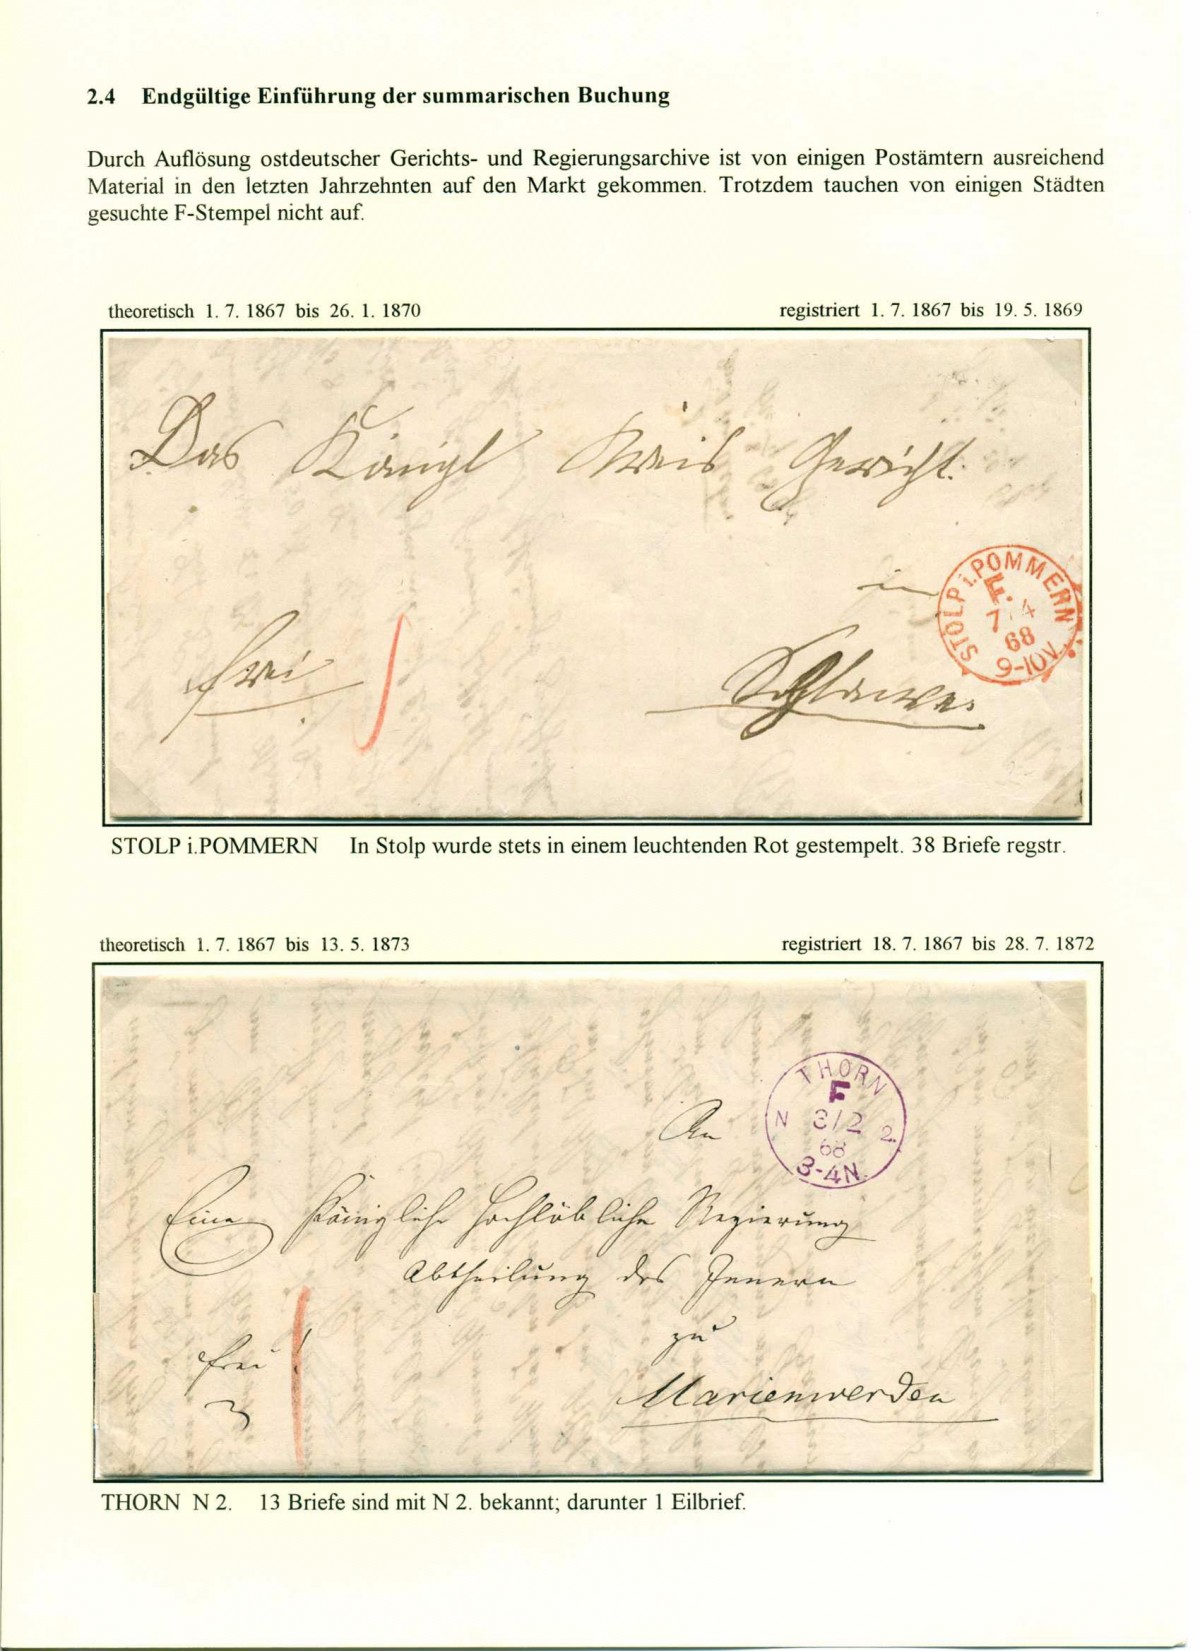 2.4 Endgültige Einführung der summarischen Buchung
Durch Auflösung ostdeutscher Gerichts- und Regierungsarchive ist von einigen Postämtern ausreichend
Material in den letzten Jahrzehnten auf den Markt gekommen. Trotzdem tauchen von einigen Städten
gesuchte F-Stempel nicht auf.
theoretisch 1. 7. 1867 bis 26. 1. 1870
registriert 1. 7. 1867 bis 19. 5. 1869
Das Königl Kreis Gericht.
in
STOLP i.POMMERN
F.
7.4
68
9-10V.
frei
Schlawe.
STOLP i.POMMERN In Stolp wurde stets in einem leuchtenden Rot gestempelt. 38 Briefe regstr.
theoretisch 1. 7. 1867 bis 13. 5. 1873
registriert 18. 7. 1867 bis 28. 7. 1872
THORN
F
N 3/2 2.
68
3-4N.
An
Eine Königliche Hochlöbliche Regierung
Abtheilung des Innern
zu
frei
Marienwerder
THORN N 2. 13 Briefe sind mit N 2. bekannt; darunter 1 Eilbrief.